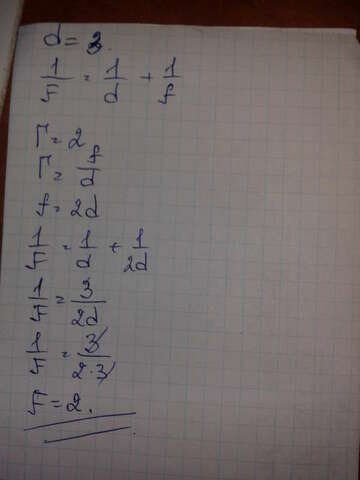 d = 3.
1/F = 1/d + 1/f
Г = 2
Г = f/d
f = 2d
1/F = 1/d + 1/2d
1/F = 3/2d
1/F = 3/2·3
F = 2.